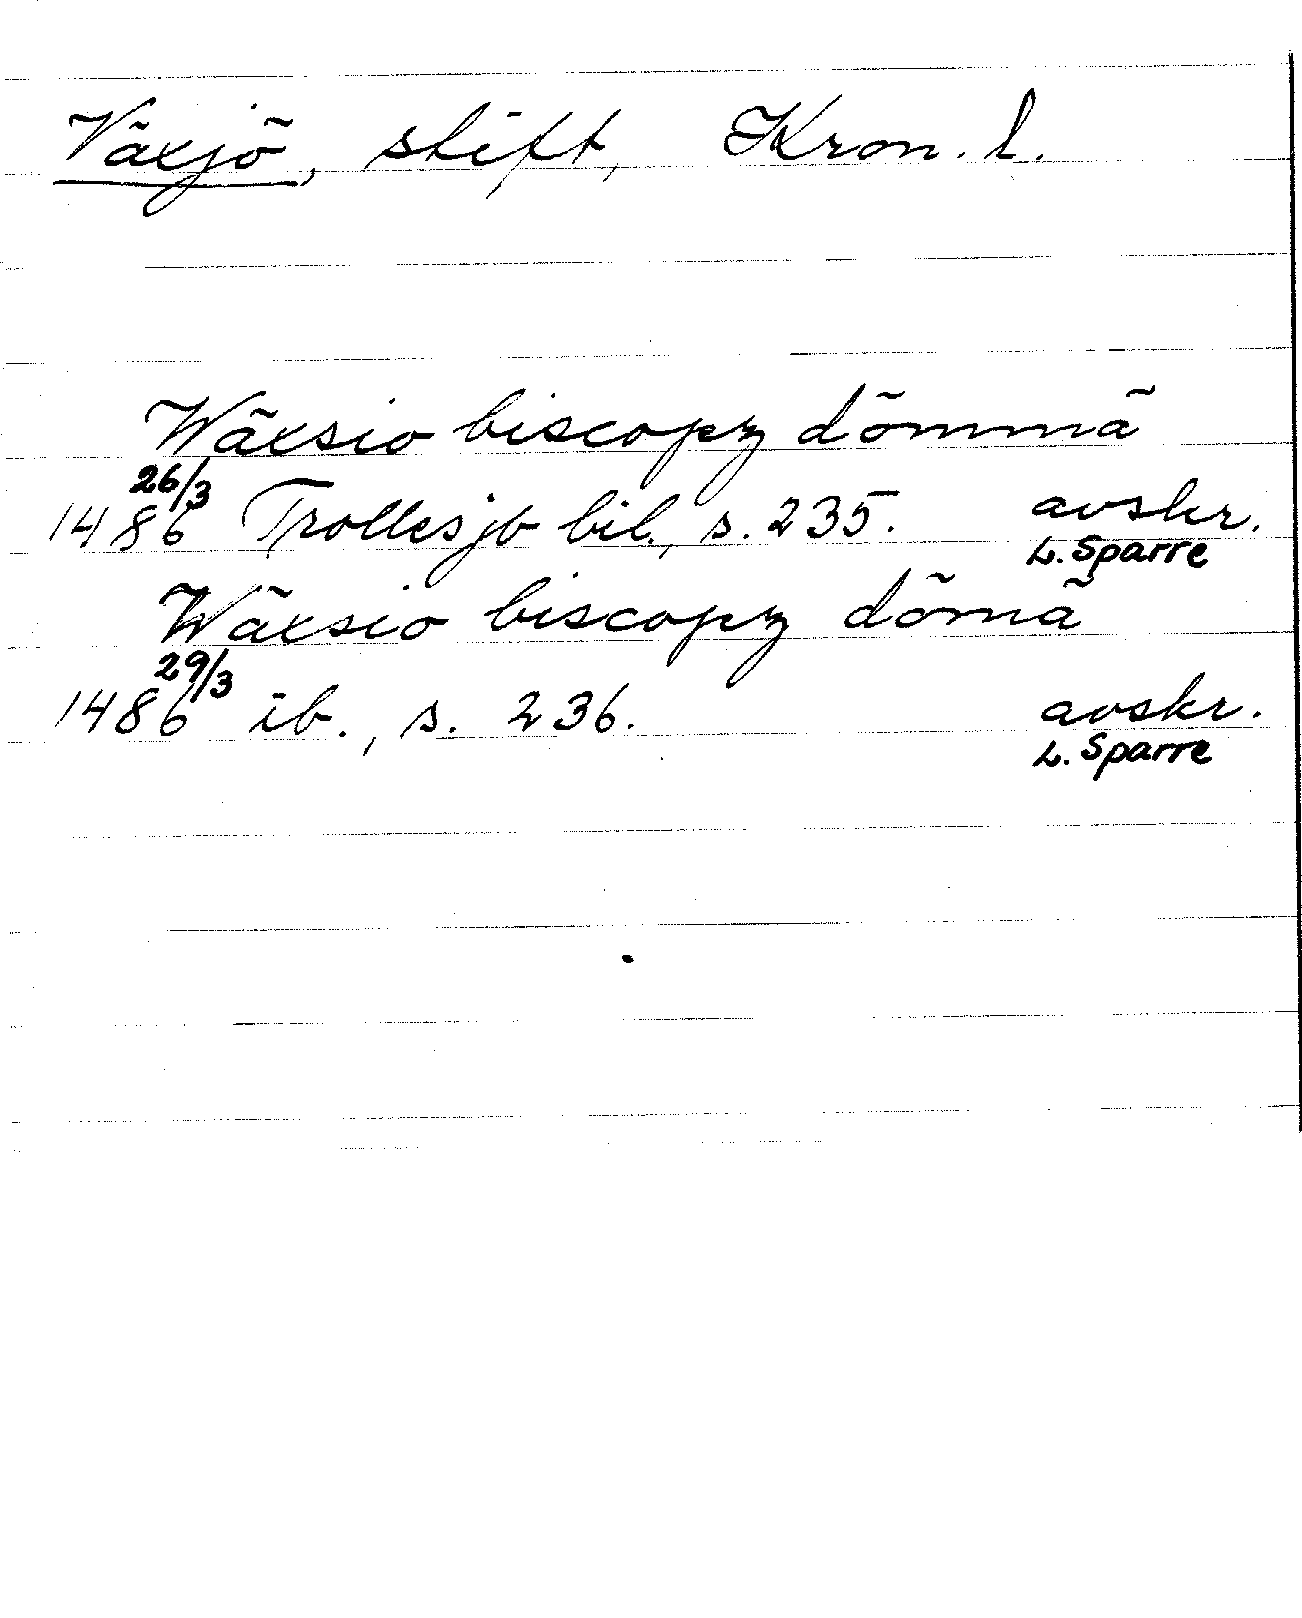 Växjö, stift, Kron. l.
Wäxsio biscopz dömmä
26/3
1486 Trollesjö bil., s. 235. avskr.
L. Sparre
Wäxsio biscopz dömä
29/3
1486 ib., s. 236. avskr.
L. Sparre